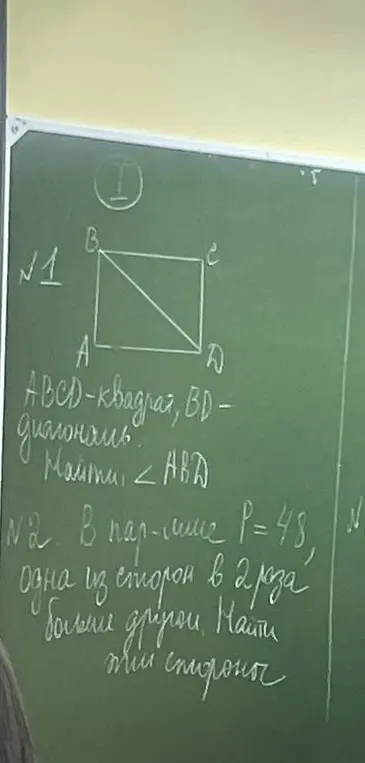 I
N1
B
C
A
D
ABCD-квадрат, BD-
диагональ.
Найти: ∠ABD
N2. В пар-мме P=48,
одна из сторон в 2 раза
больше другой. Найти
эти стороны
N